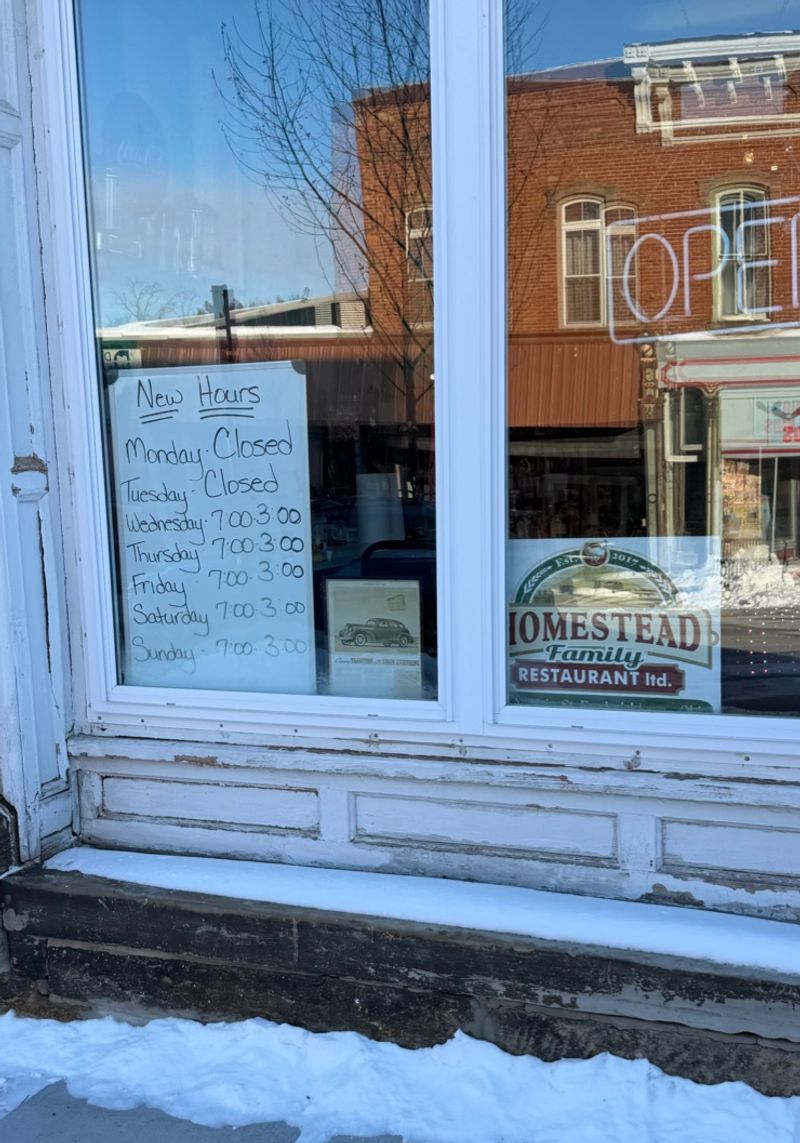 New Hours
Monday - Closed
Tuesday - Closed
Wednesday - 7:00-3:00
Thursday 7:00-3:00
Friday 7:00-3:00
Saturday 7:00-3:00
Sunday - 7:00-3:00
OPE
Est. 2017
HOMESTEAD
Family
RESTAURANT ltd.